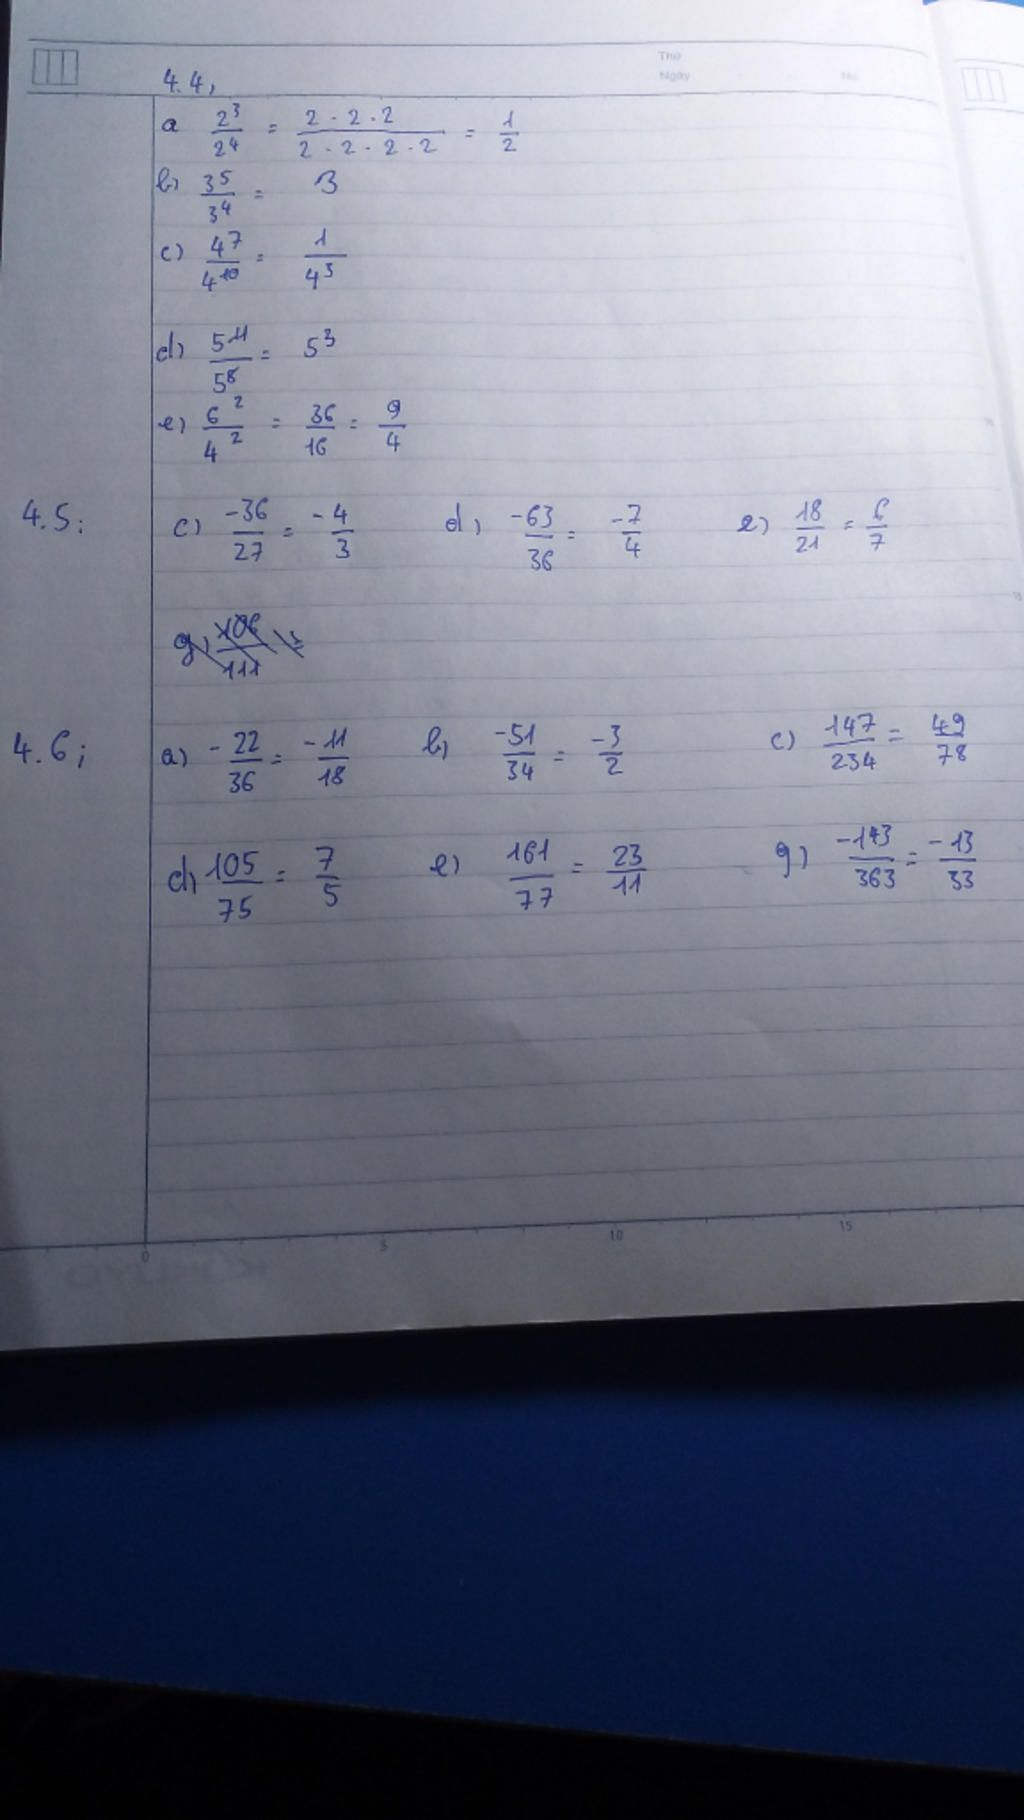 Thứ
Ngày No.
4.4,
a 2³/2⁴ = 2 · 2 · 2 / 2 · 2 · 2 · 2 = 1/2
b) 3⁵/3⁴ = 3
c) 4⁷/4¹⁰ = 1/4³
d) 5¹¹/5⁸ = 5³
e) 6²/4² = 36/16 = 9/4
4.5: c) -36/27 = -4/3 d, -63/36 = -7/4 e) 18/21 = 6/7
g) 106/111 =
4.6; a) -22/36 = -11/18 b) -51/34 = -3/2 c) 147/234 = 49/78
d) 105/75 = 7/5 e) 161/77 = 23/11 g) -143/363 = -13/33
0 5 10 15